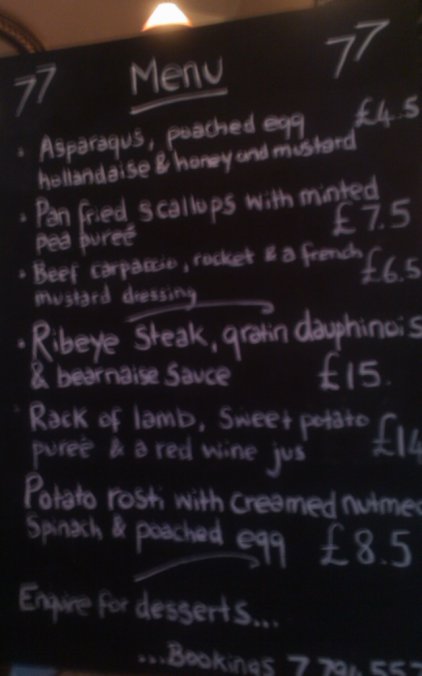 77 Menu 77
• Asparagus, poached egg £4.5
hollandaise & honey and mustard
• Pan fried scallops with minted
pea pureé £7.5
• Beef carpaccio, rocket & a french
mustard dressing £6.5
• Ribeye Steak, gratin dauphinois
& bearnaise Sauce £15.
Rack of lamb, Sweet potato
pureé & a red wine jus £14
Potato rosti with creamed nutmeg
Spinach & poached egg £8.5
Enquire for desserts...
...Bookings